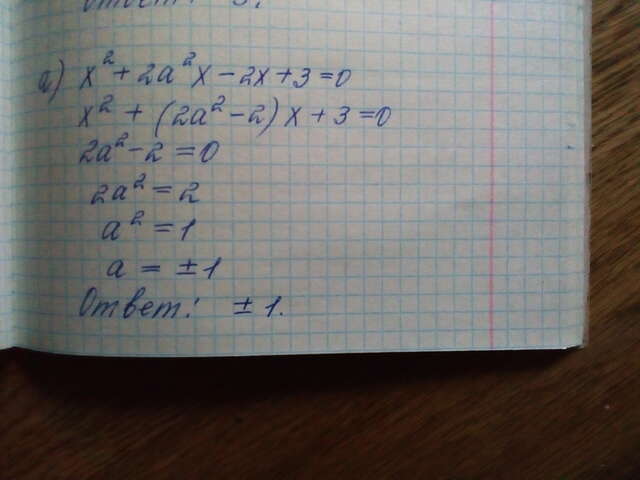 Ответ: 3.
а) x² + 2a²x - 2x + 3 = 0
x² + (2a² - 2)x + 3 = 0
2a² - 2 = 0
2a² = 2
a² = 1
a = ±1
Ответ: ±1.